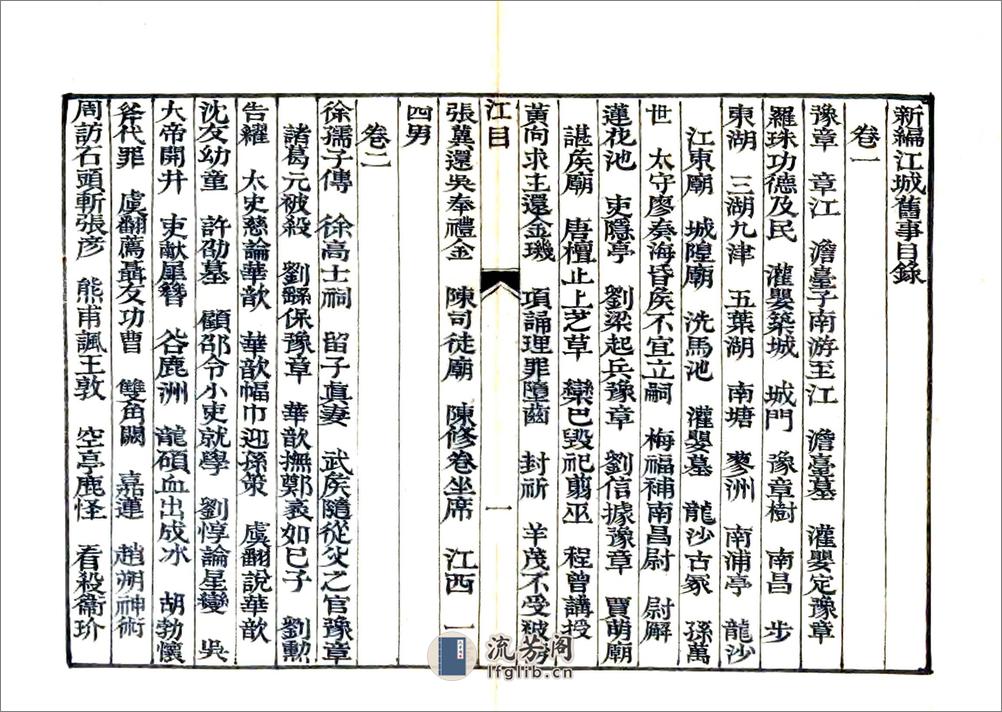 新編江城舊事目錄
卷一
豫章　章江　澹臺子南游至江　澹臺墓　灌嬰定豫章
羅珠功德及民　灌嬰築城　城門　豫章樹　南昌　步
東湖　三湖九津　五葉湖　南塘　蓼洲　南浦亭　龍沙
江東廟　城隍廟　洗馬池　灌嬰墓　龍沙古冢　孫萬
世　太守廖奏海昏矦不宜立嗣　梅福補南昌尉　尉廨
蓮花池　吏隱亭　劉梁起兵豫章　劉信據豫章　賈萌廟
諶矦廟　唐檀止上芝草　欒巴毀祀翦巫　程曾講授
黃向求主還金璣　項誦理罪墮齒　封祈　羊茂不受被
江目　一
張冀還吳奉禮金　陳司徒廟　陳修卷坐席　江西一
四男
卷二
徐孺子傳　徐高士祠　留子眞妻　武矦隨從父之官豫章
諸葛元被殺　劉繇保豫章　華歆撫鄭袤如已子　劉勳
告糴　太史慈論華歆　華歆幅巾迎孫策　虞翻說華歆
沈友幼童　許劭墓　顧邵令小吏就學　劉惇論星變　吳
大帝開井　吏獻犀簪　谷鹿洲　龍碩血出成冰　胡勃懷
斧代罪　虞翻薦聶友功曹　雙角闕　嘉蓮　趙朔神術
周訪石頭斬張彥　熊甫諷王敦　空亭鹿怪　看殺衞玠
流芳阁
lfglib.cn